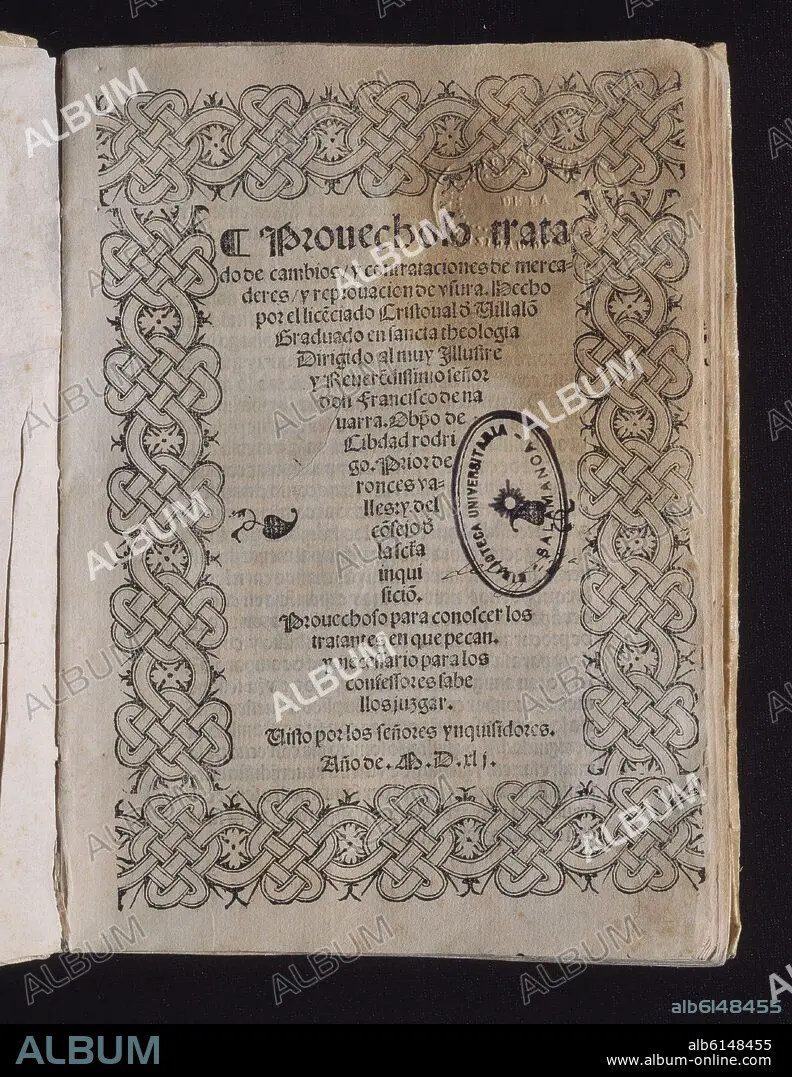 ¶ Prouechoso trata
do de cambios/ y contrataciones de merca-
deres/ y reprouacion de vsura. Hecho
por el licẽciado Cristoual d̃ Uillalõ
Graduado en sancta theologia
Dirigido al muy Illustre
y Reuerẽdissimo señor
don Francisco de na
uarra. Obp̃o de
Cibdad rodri
go. Prior de
ronces va-
lles: y del
cõsejo d̃
la sctã
inqui
siciõ.
Prouechoso para conoscer los
tratantes en que pecan.
y necessario para los
confessores saber
llos juzgar.
Uisto por los señores ynquisidores.
Año de. M. D. xlj.
BIBLIOTECA UNIVERSITARIA - SALAMANCA -
DE LA
ALBUM
alb6148455
ALBUM
alb6148455
www.album-online.com